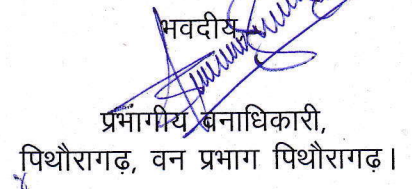 भवदीय,
प्रभागीय वनाधिकारी,
पिथौरागढ़, वन प्रभाग पिथौरागढ़।